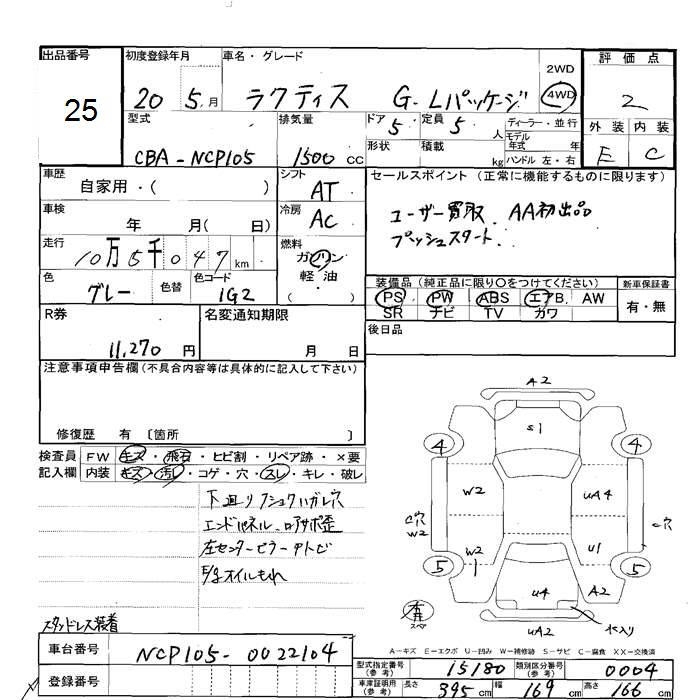 出品番号 25
初度登録年月 20 5月
車名・グレード ラクティス G-Lパッケージ
2WD
4WD
評価点 2
外装 内装
E C
型式 CBA-NCP105
排気量 1500 CC
ドア 5
定員 5 人
ディーラー・並行
モデル年式 年
形状
積載 kg
ハンドル 左・右
車歴 自家用・( )
シフト AT
セールスポイント (正常に機能するものに限ります)
車検 年 月( 日)
冷房 AC
ユーザー買取. AA初出品
プッシュスタート.
走行 10万5千047 km
燃料 ガソリン
軽油
( ・ )
色 グレー 色替
色コード 1G2
装備品 (純正品に限り○をつけてください)
PS PW ABS エアB. AW
SR ナビ TV カワ
新車保証書
有・無
R券 11,270 円
名変通知期限 月 日
後日品
注意事項申告欄 (不具合内容等は具体的に記入して下さい)
修復歴 有 〔箇所 〕
検査員記入欄
FW キズ・飛石・ヒビ割・リペア跡・×要
内装 キズ・汚レ・コゲ・穴・スレ・キレ・破レ
エンドパネル
オイルもれ
スタッドレス装着
A2
S1
4
4
W2
UA4
穴
W2
穴
W2
1
U1
5
5
U4
A2
UA2
スペア
A-キズ E-エクボ U-凹み W-補修跡 S-サビ C-腐食 XX-交換済
車台番号 NCP105-0022104
登録番号
型式指定番号(参考) 15180
類別区分番号(参考) 0004
車庫証明用(参考) 長さ 395 cm 幅 169 cm 高さ 166 cm